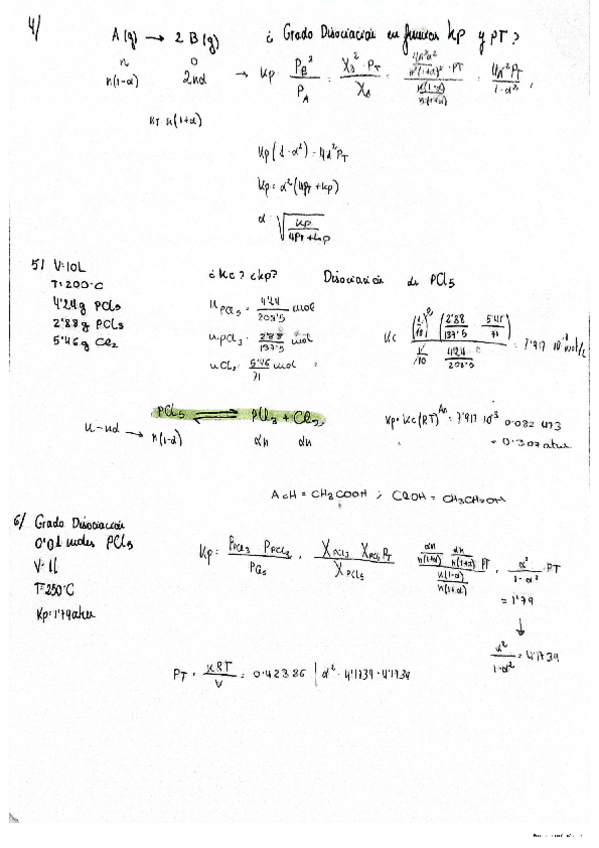 4/ A(g) → 2 B(g) ¿ Grado Disociación en función kp y PT?
n 0
n(1-α) 2nα → Kp = P_B² / P_A = X_B² · P_T / X_A = 4α²P_T / 1-α²
n_T = n(1+α)
Kp(1-α²) = 4α²P_T
Kp = α²(4P_T + Kp)
α = √ Kp / 4P_T + Kp
5/ V=10L ¿Kc? ¿Kp? Disociación de PCl5
T=200ºC
4'24g PCl5
2'88g PCl3
5'46g Cl2
n PCl5 = 4'24 / 208'5 mol
n PCl3 = 2'88 / 137'5 mol
n Cl2 = 5'46 / 71 mol
Kc (1/10)² (2'88 / 137'5 5'46 / 71) / 1/10 4'24 / 208'5 = 7'917 10⁻³ mol/L
PCl5 ⇌ PCl3 + Cl2
n-nα → n(1-α) αn αn
Kp = Kc(RT)^Δn = 7'917 10⁻³ 0.082 473
= 0.307 atm
AcH = CH3COOH ; C2OH = CH3CH2OH
6/ Grado Disociación
0'01 moles PCl5
V=1L
T=250ºC
Kp=1'79atm
Kp = P_PCl3 P_PCl2 / P_Cl5 = X_PCl3 X_PCl2 P_T / X_PCl5 = αn / n(1+α) αn / n(1+α) PT / n(1-α) / n(1+α) = α² / 1-α² · PT
= 1'79
↓
α² / 1-α² = 4'1739
PT = nRT / V = 0.42886 | α² = 4'1739 - 4'1739